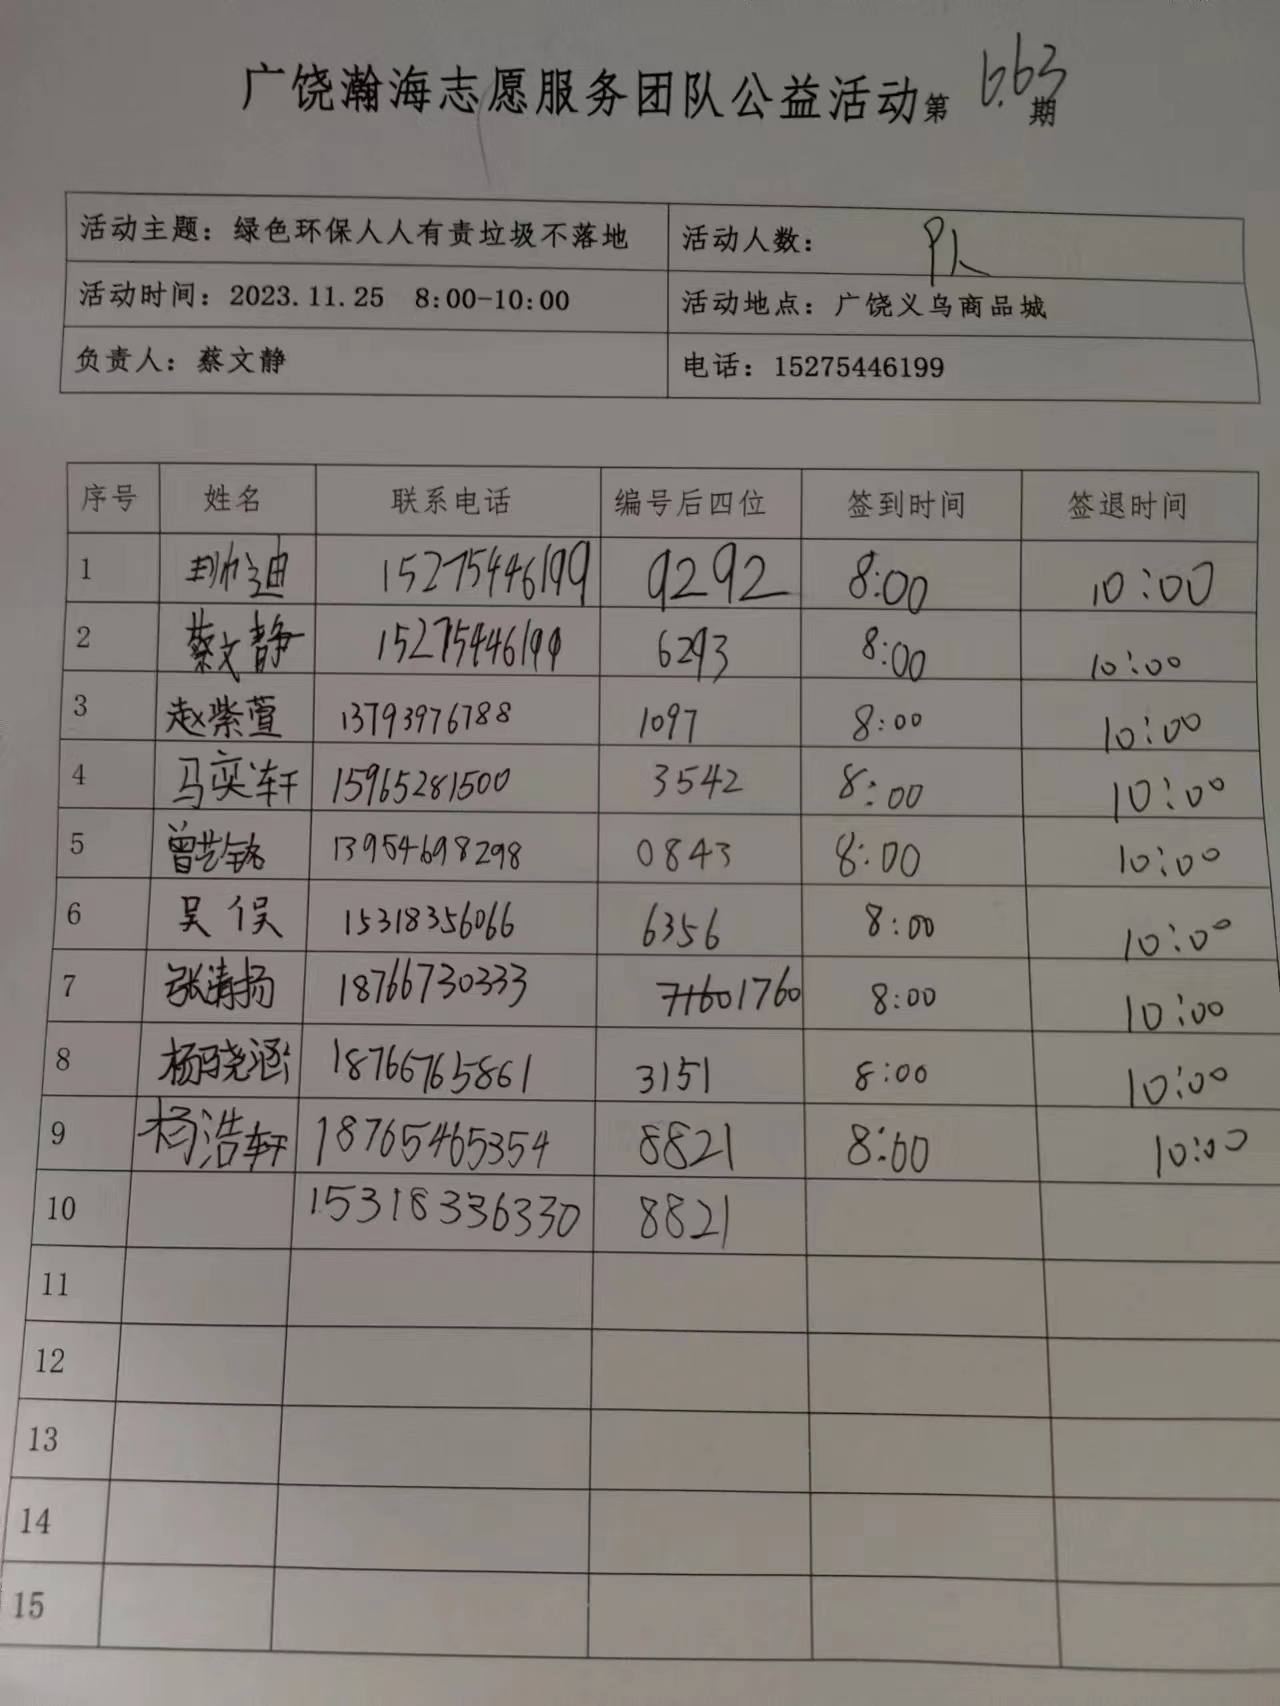 广饶瀚海志愿服务团队公益活动第663期
活动主题：绿色环保人人有责垃圾不落地 活动人数： 9人
活动时间：2023.11.25 8:00-10:00 活动地点：广饶义乌商品城
负责人：蔡文静 电话：15275446199
序号 姓名 联系电话 编号后四位 签到时间 签退时间
1 15275446199 9292 8:00 10:00
2 蔡文静 15275446199 6293 8:00 10:00
3 赵紫萱 13793976788 1097 8:00 10:00
4 马奕轩 15965281500 3542 8:00 10:00
5 曾艺铭 13954698298 0843 8:00 10:00
6 吴俣 15318356066 6356 8:00 10:00
7 张清扬 18766730333 1760 8:00 10:00
8 杨骁涵 18766765861 3151 8:00 10:00
9 杨浩轩 18765465354 8821 8:00 10:00
10 15318336330 8821
11
12
13
14
15